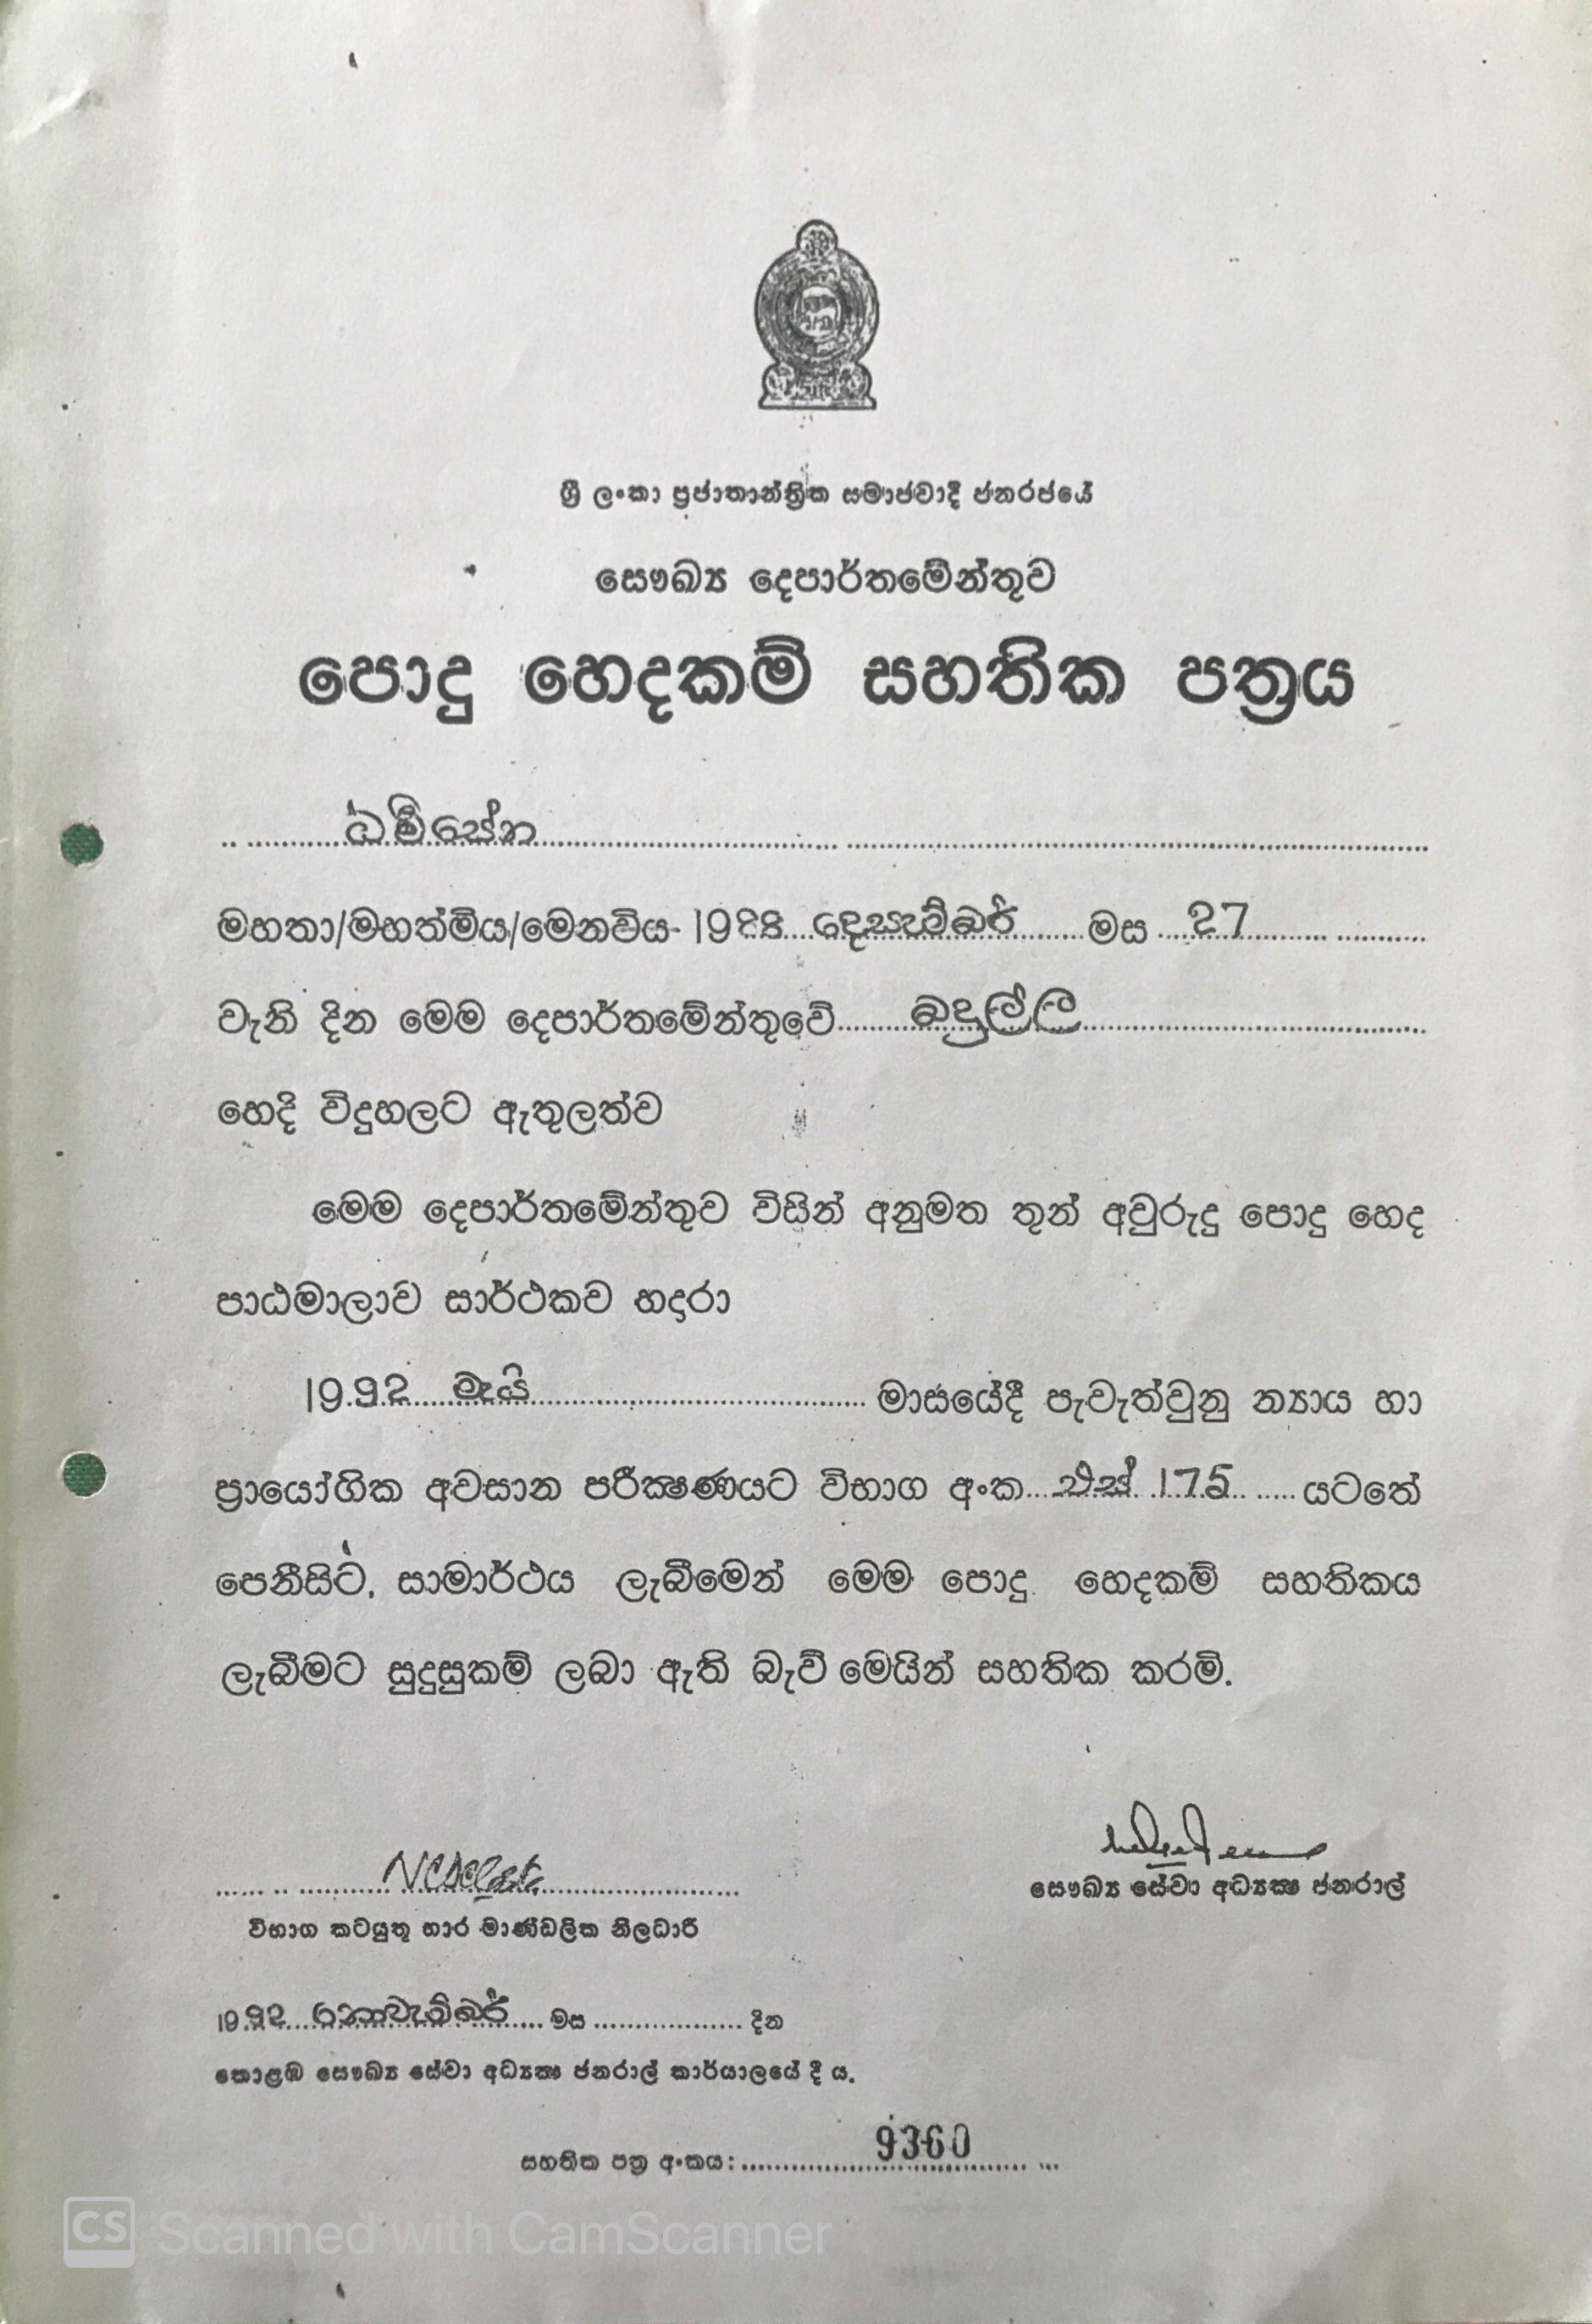 ශ්‍රී ලංකා ප්‍රජාතාන්ත්‍රික සමාජවාදී ජනරජයේ
සෞඛ්‍ය දෙපාර්තමේන්තුව
පොදු හෙදකම් සහතික පත්‍රය
ධර්මසේන
මහතා/මහත්මිය/මෙනවිය 1988 දෙසැම්බර් මස 27
වැනි දින මෙම දෙපාර්තමේන්තුවේ බදුල්ල
හෙදි විදුහලට ඇතුලත්ව
මෙම දෙපාර්තමේන්තුව විසින් අනුමත තුන් අවුරුදු පොදු හෙද
පාඨමාලාව සාර්ථකව හදාරා
1992 මැයි මාසයේදී පැවැත්වුනු න්‍යාය හා
ප්‍රායෝගික අවසාන පරීක්‍ෂණයට විභාග අංක එස් 175 යටතේ
පෙනීසිට, සාමාර්ථය ලැබීමෙන් මෙම පොදු හෙදකම් සහතිකය
ලැබීමට සුදුසුකම් ලබා ඇති බැව් මෙයින් සහතික කරමි.
සෞඛ්‍ය සේවා අධ්‍යක්‍ෂ ජනරාල්
විභාග කටයුතු භාර මාණ්ඩලික නිලධාරී
1992 නොවැම්බර් මස දින
කොළඹ සෞඛ්‍ය සේවා අධ්‍යක්‍ෂ ජනරාල් කාර්යාලයේ දී ය.
සහතික පත්‍ර අංකය: 9360
CS Scanned with CamScanner